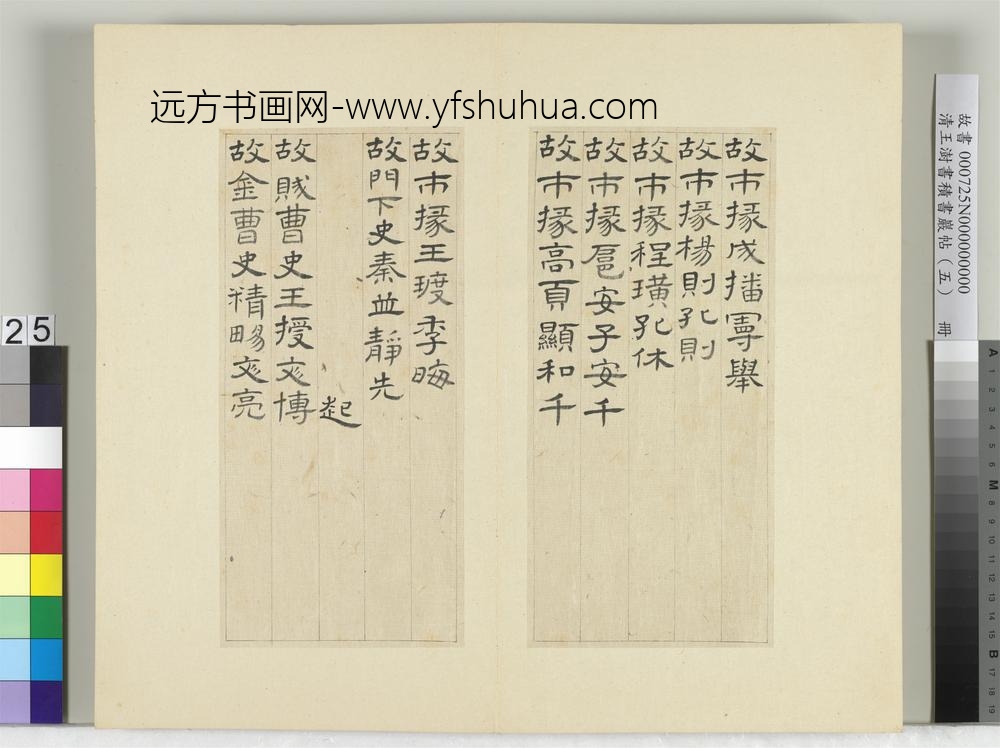 远方书画网-www.yfshuhua.com
故市掾成播曼舉
故市掾楊則孔則
故市掾程璜孔休
故市掾扈安子安千
故市掾高頁顯和千
故市掾王玻季晦
故門下史秦並靜先
起
故賊曹史王授文博
故金曹史精暘文亮
故書 000725N000000000
清王澍書積書巖帖（五） 冊
25
A 1 2 3 4 5 6 M 8 9 10 11 12 13 14 15 B 17 18 19